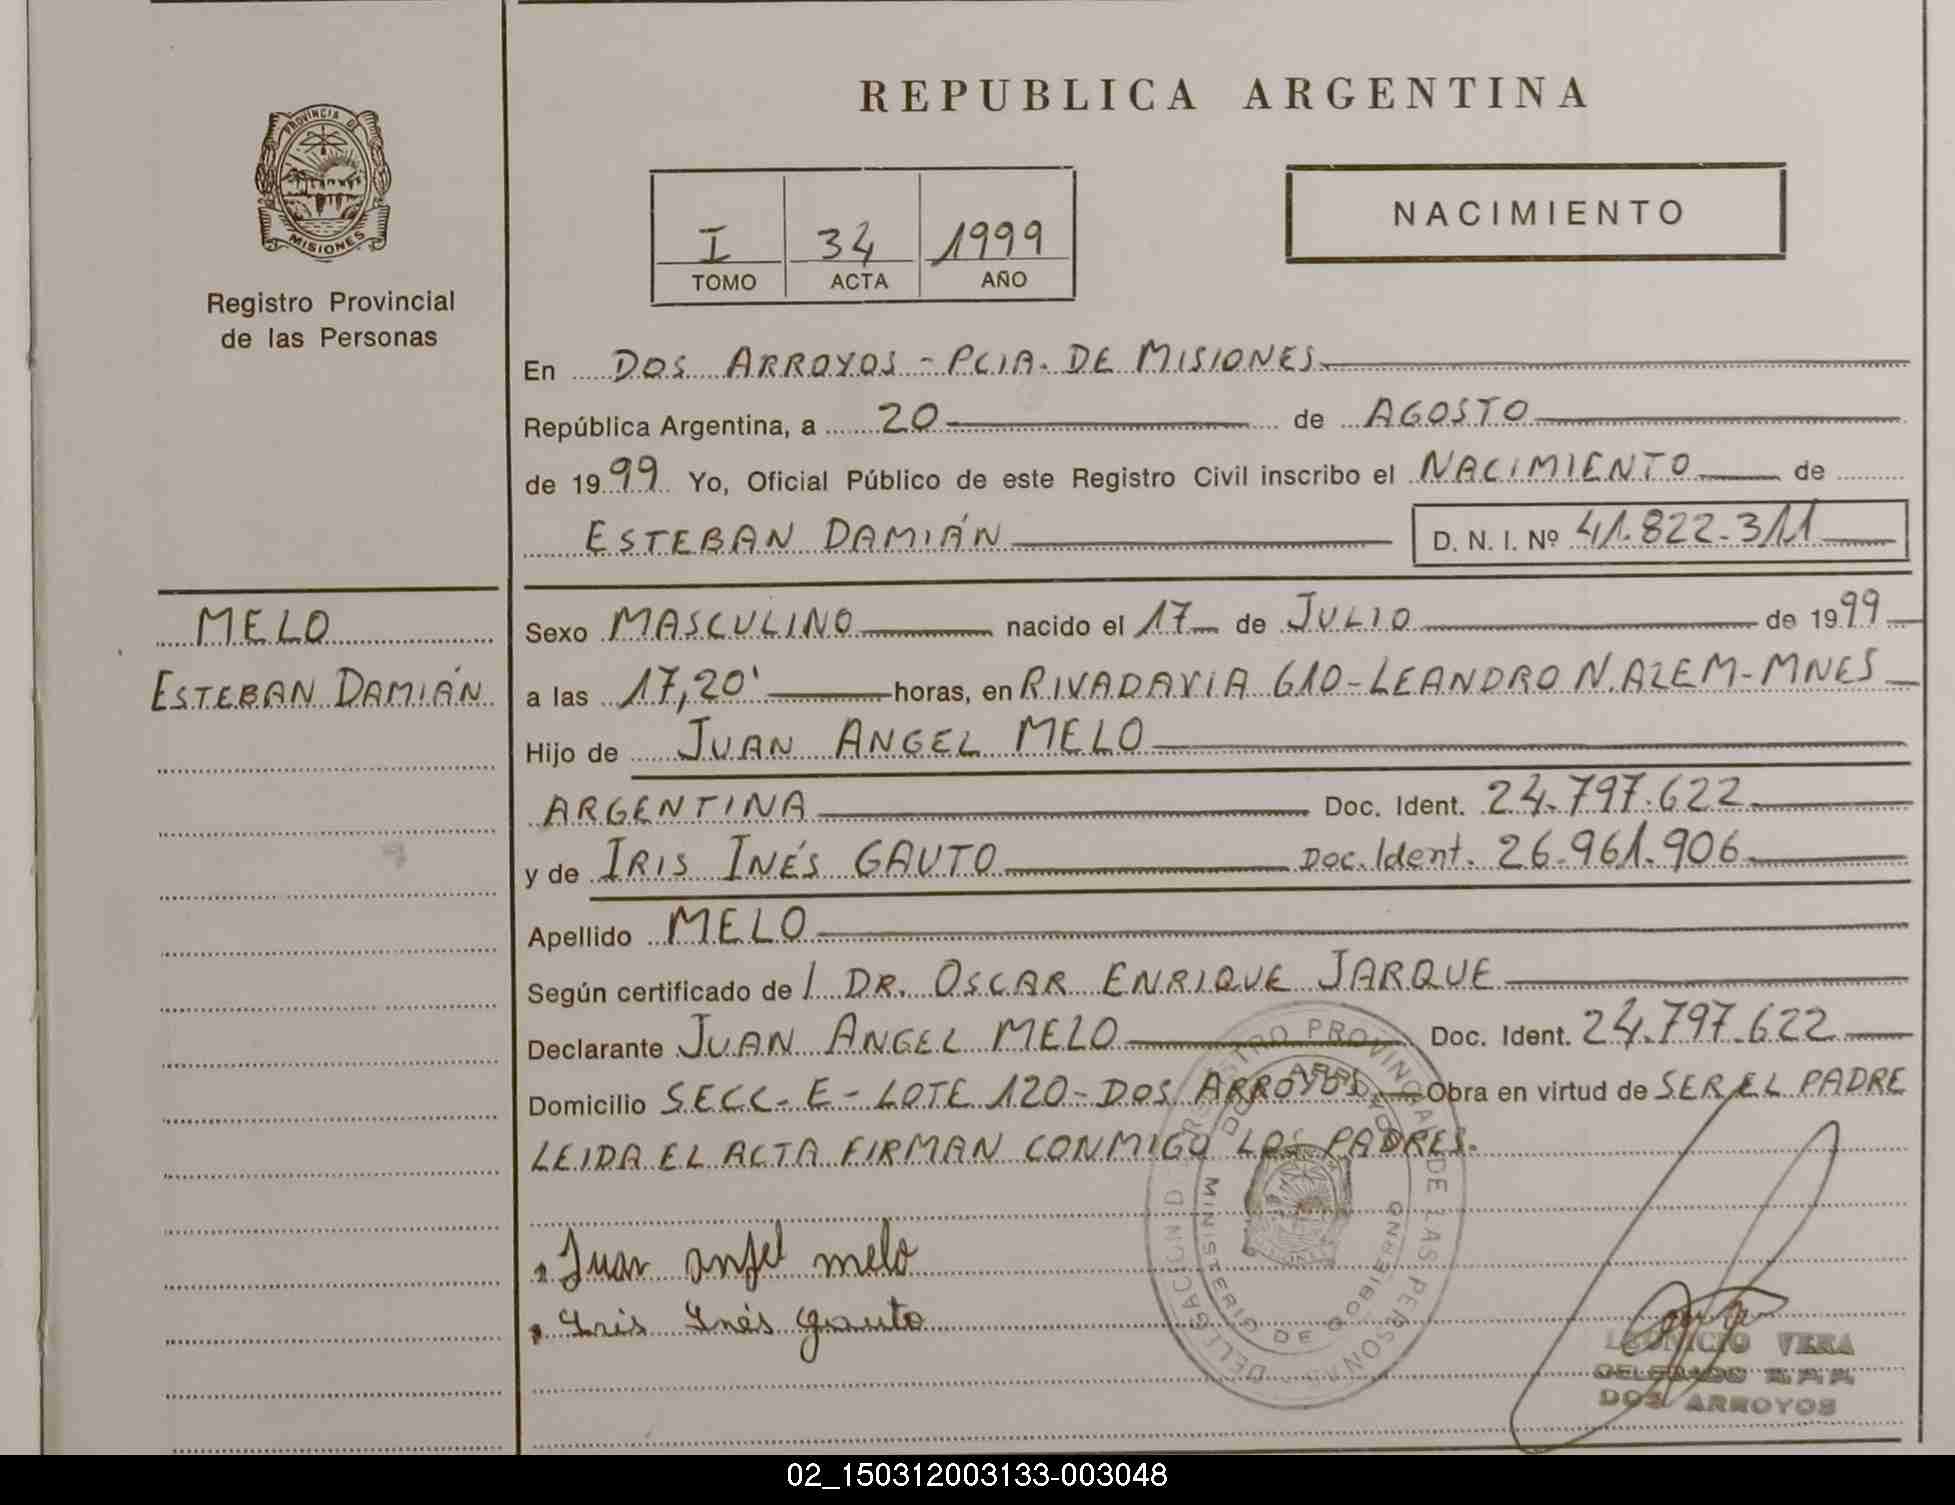 REPUBLICA ARGENTINA
PROVINCIA DE
MISIONES
Registro Provincial
de las Personas
I 34 1999
TOMO ACTA AÑO
NACIMIENTO
En DOS ARROYOS - PCIA. DE MISIONES
República Argentina, a 20 de AGOSTO
de 1999 Yo, Oficial Público de este Registro Civil inscribo el NACIMIENTO de
ESTEBAN DAMIÁN D. N. I. Nº 41.822.311
MELO
ESTEBAN DAMIÁN
Sexo MASCULINO nacido el 17 de JULIO de 1999
a las 17,20' horas, en RIVADAVIA 610-LEANDRO N. ALEM-MNES
Hijo de JUAN ANGEL MELO
ARGENTINA Doc. Ident. 24.797.622
y de IRIS INÉS GAUTO Doc. Ident. 26.961.906
Apellido MELO
Según certificado de l DR. OSCAR ENRIQUE JARQUE
Declarante JUAN ANGEL MELO Doc. Ident. 24.797.622
Domicilio SECC- E - LOTE 120- DOS ARROYOS Obra en virtud de SER EL PADRE
LEIDA EL ACTA FIRMAN CONMIGO LOS PADRES.
Juan angel melo
Iris Inés gauto
REGISTRO PROVINCIAL DE LAS PERSONAS
DELEGACION
DOS ARROYOS
MINISTERIO DE GOBIERNO
LEONICIO VERA
DELEGADO R.P.P.
DOS ARROYOS
02_150312003133-003048